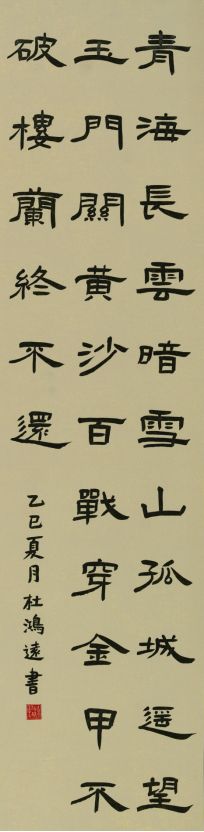 青海長雲暗雪山孤城遥望
玉門關黄沙百戰穿金甲不
破樓蘭終不還
乙巳夏月杜鴻遠書